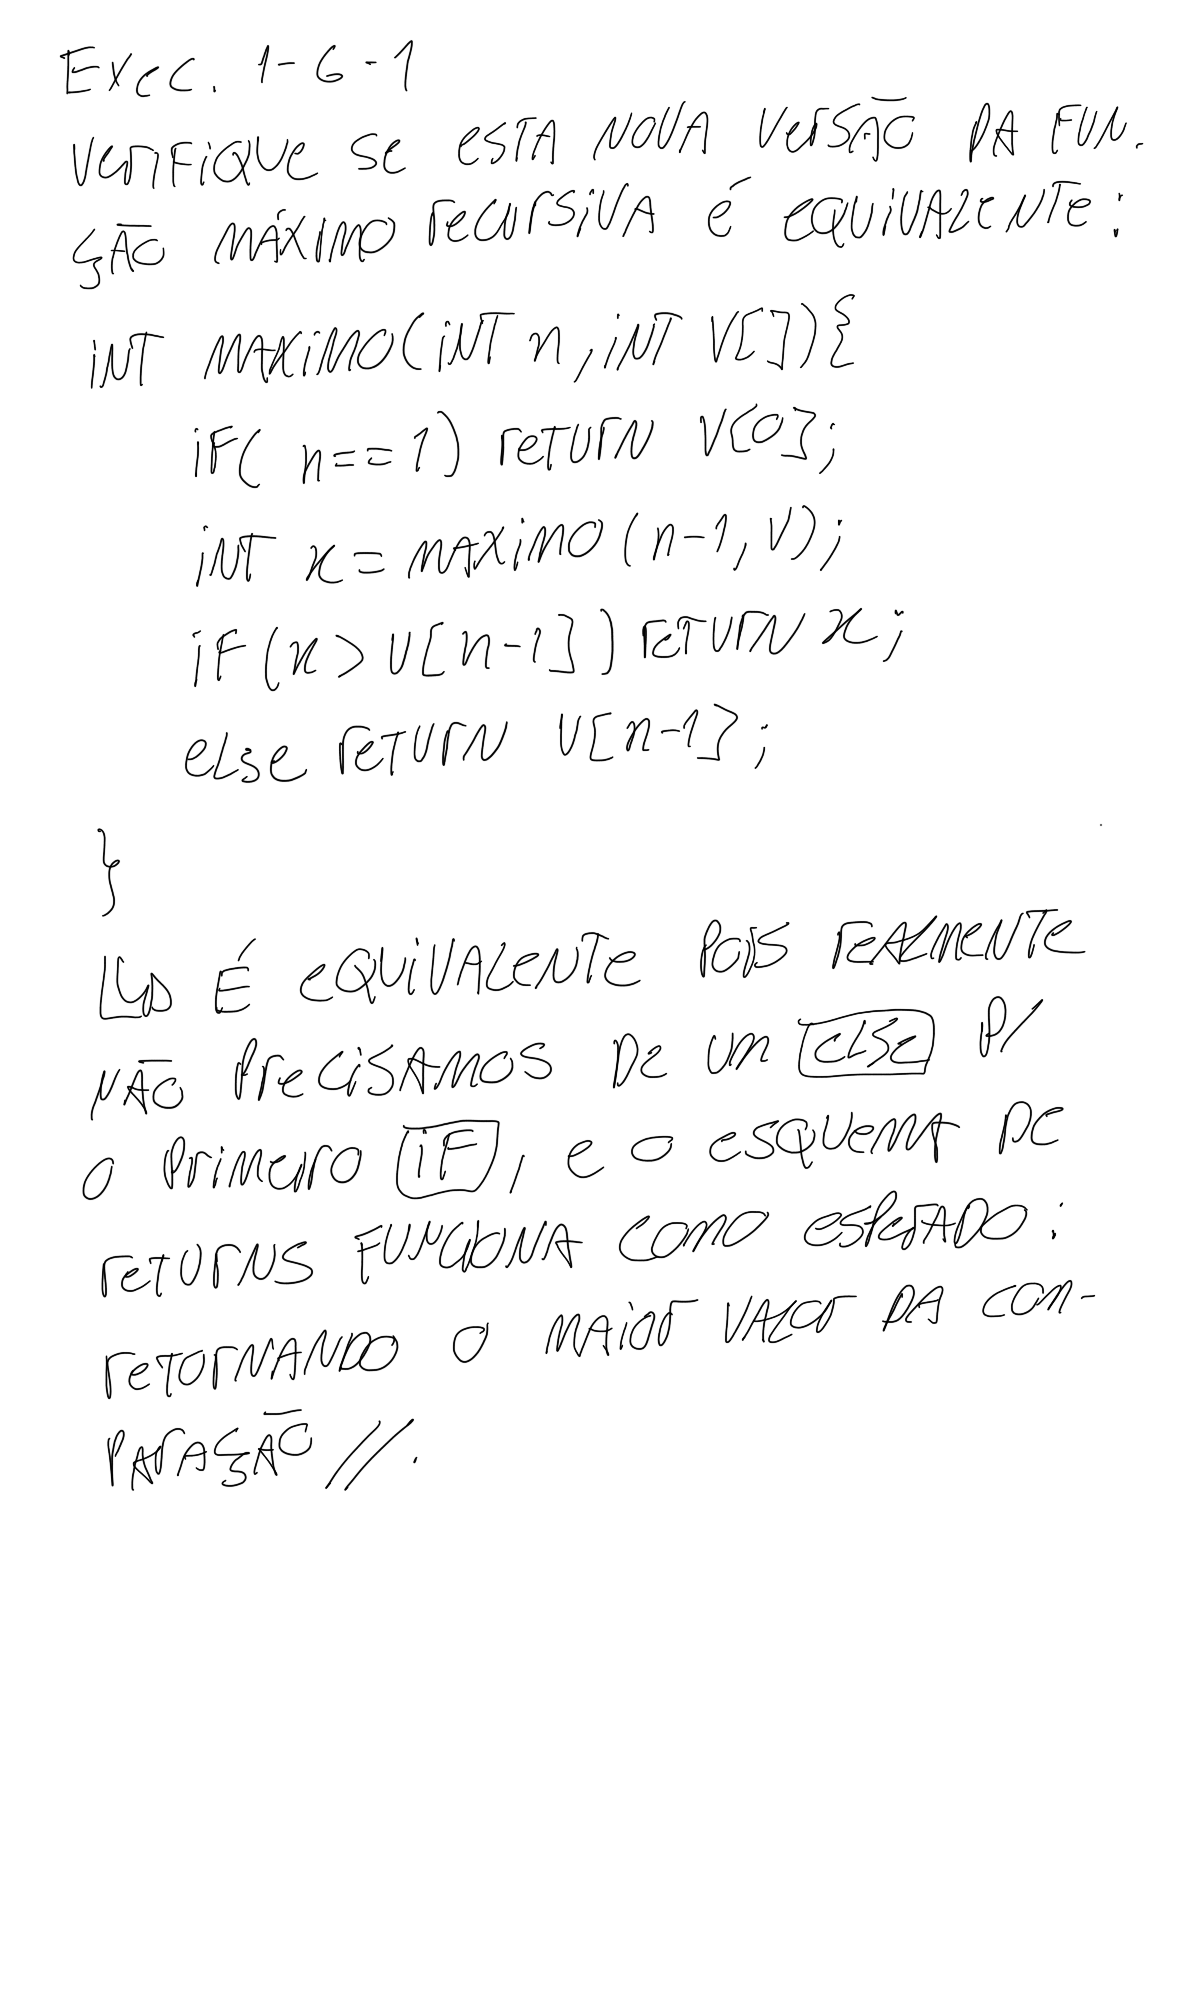 Exec. 1-6-1
Verifique se ESTA NOVA VersÃO DA FUN.
ÇÃO MÁXIMO recursiVA é EQUIVALENTE:
iNT MAXiMO(iNT n, iNT V[]){
iF( n==1) reTURN V[0];
iNT x = MAXiMO(n-1, V);
iF(x > V[n-1]) reTURN x;
eLse reTURN V[n-1];
}
É eQUiVALeNTe POIS reALMeNTe
NÃO PreCiSAMOS De um eLSe P/
o Primeiro iF, e o esQUEMA De
reTURNS FUNCiONA COMO esPerADO:
reTORNANDO O MAior VALor DA COM-
PArAÇÃO //.